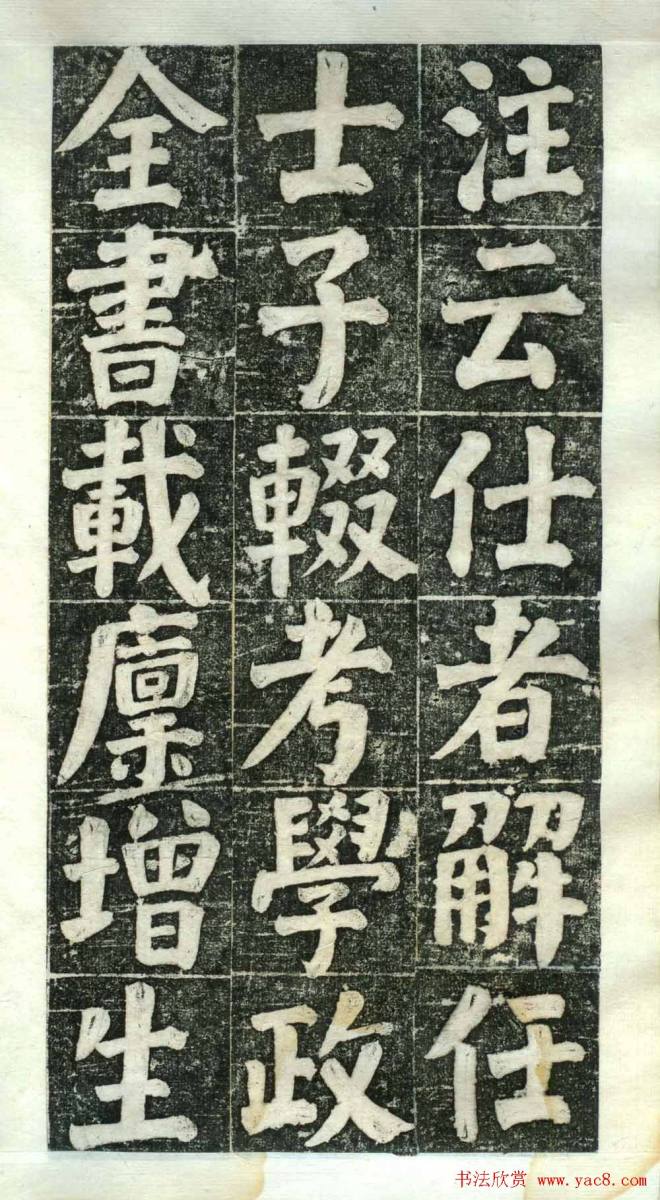 注云仕者解任
士子輟考學政
全書載廩增生
书法欣赏 www.yac8.com